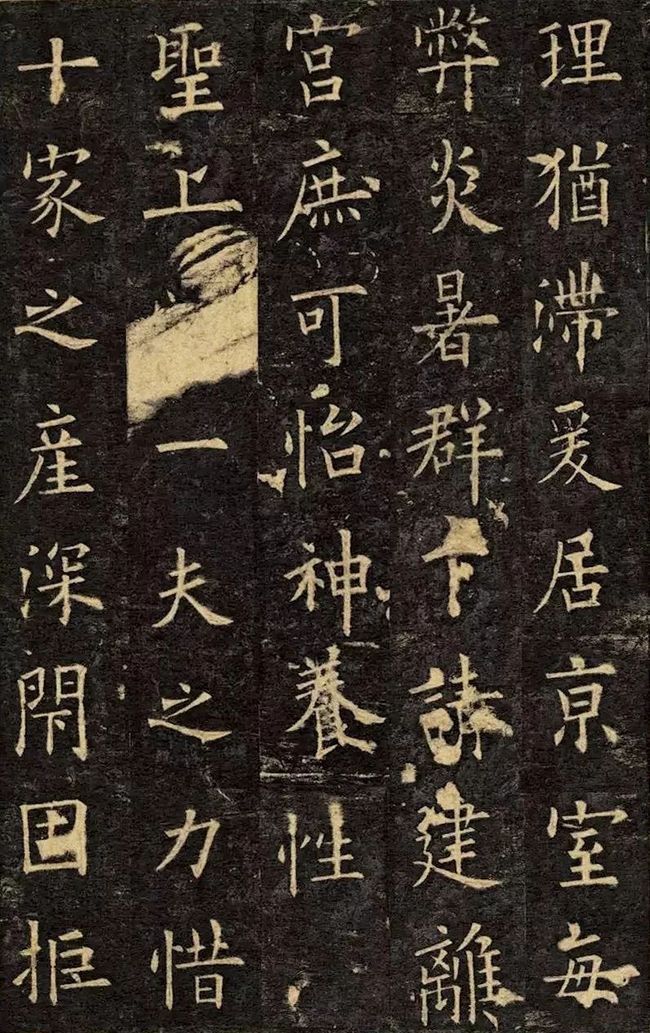 理猶滯爰居亰室每
弊炎暑群下請建離
宮庶可怡神養性
聖上一夫之力惜
十家之産深閇固拒